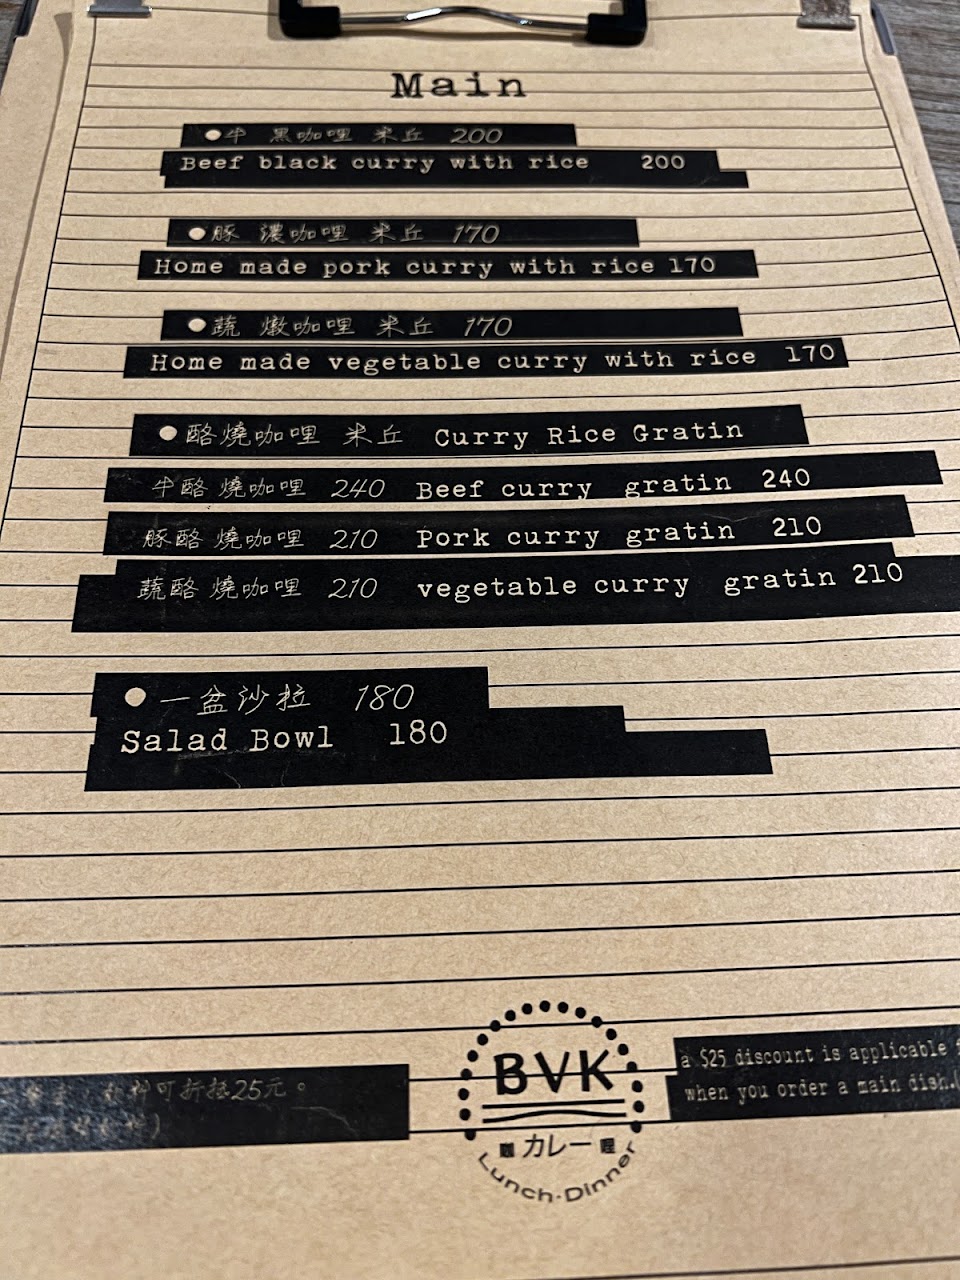 Main
牛 黑咖哩 米丘 200
Beef black curry with rice 200
豚 濃咖哩 米丘 170
Home made pork curry with rice 170
蔬 燉咖哩 米丘 170
Home made vegetable curry with rice 170
酪燒咖哩 米丘 Curry Rice Gratin
牛酪 燒咖哩 240 Beef curry gratin 240
豚酪 燒咖哩 210 Pork curry gratin 210
蔬酪 燒咖哩 210 vegetable curry gratin 210
一盆沙拉 180
Salad Bowl 180
可折抵25元。
BVK
咖 カレー 哩
Lunch·Dinner
a $25 discount is applicable
when you order a main dish.(